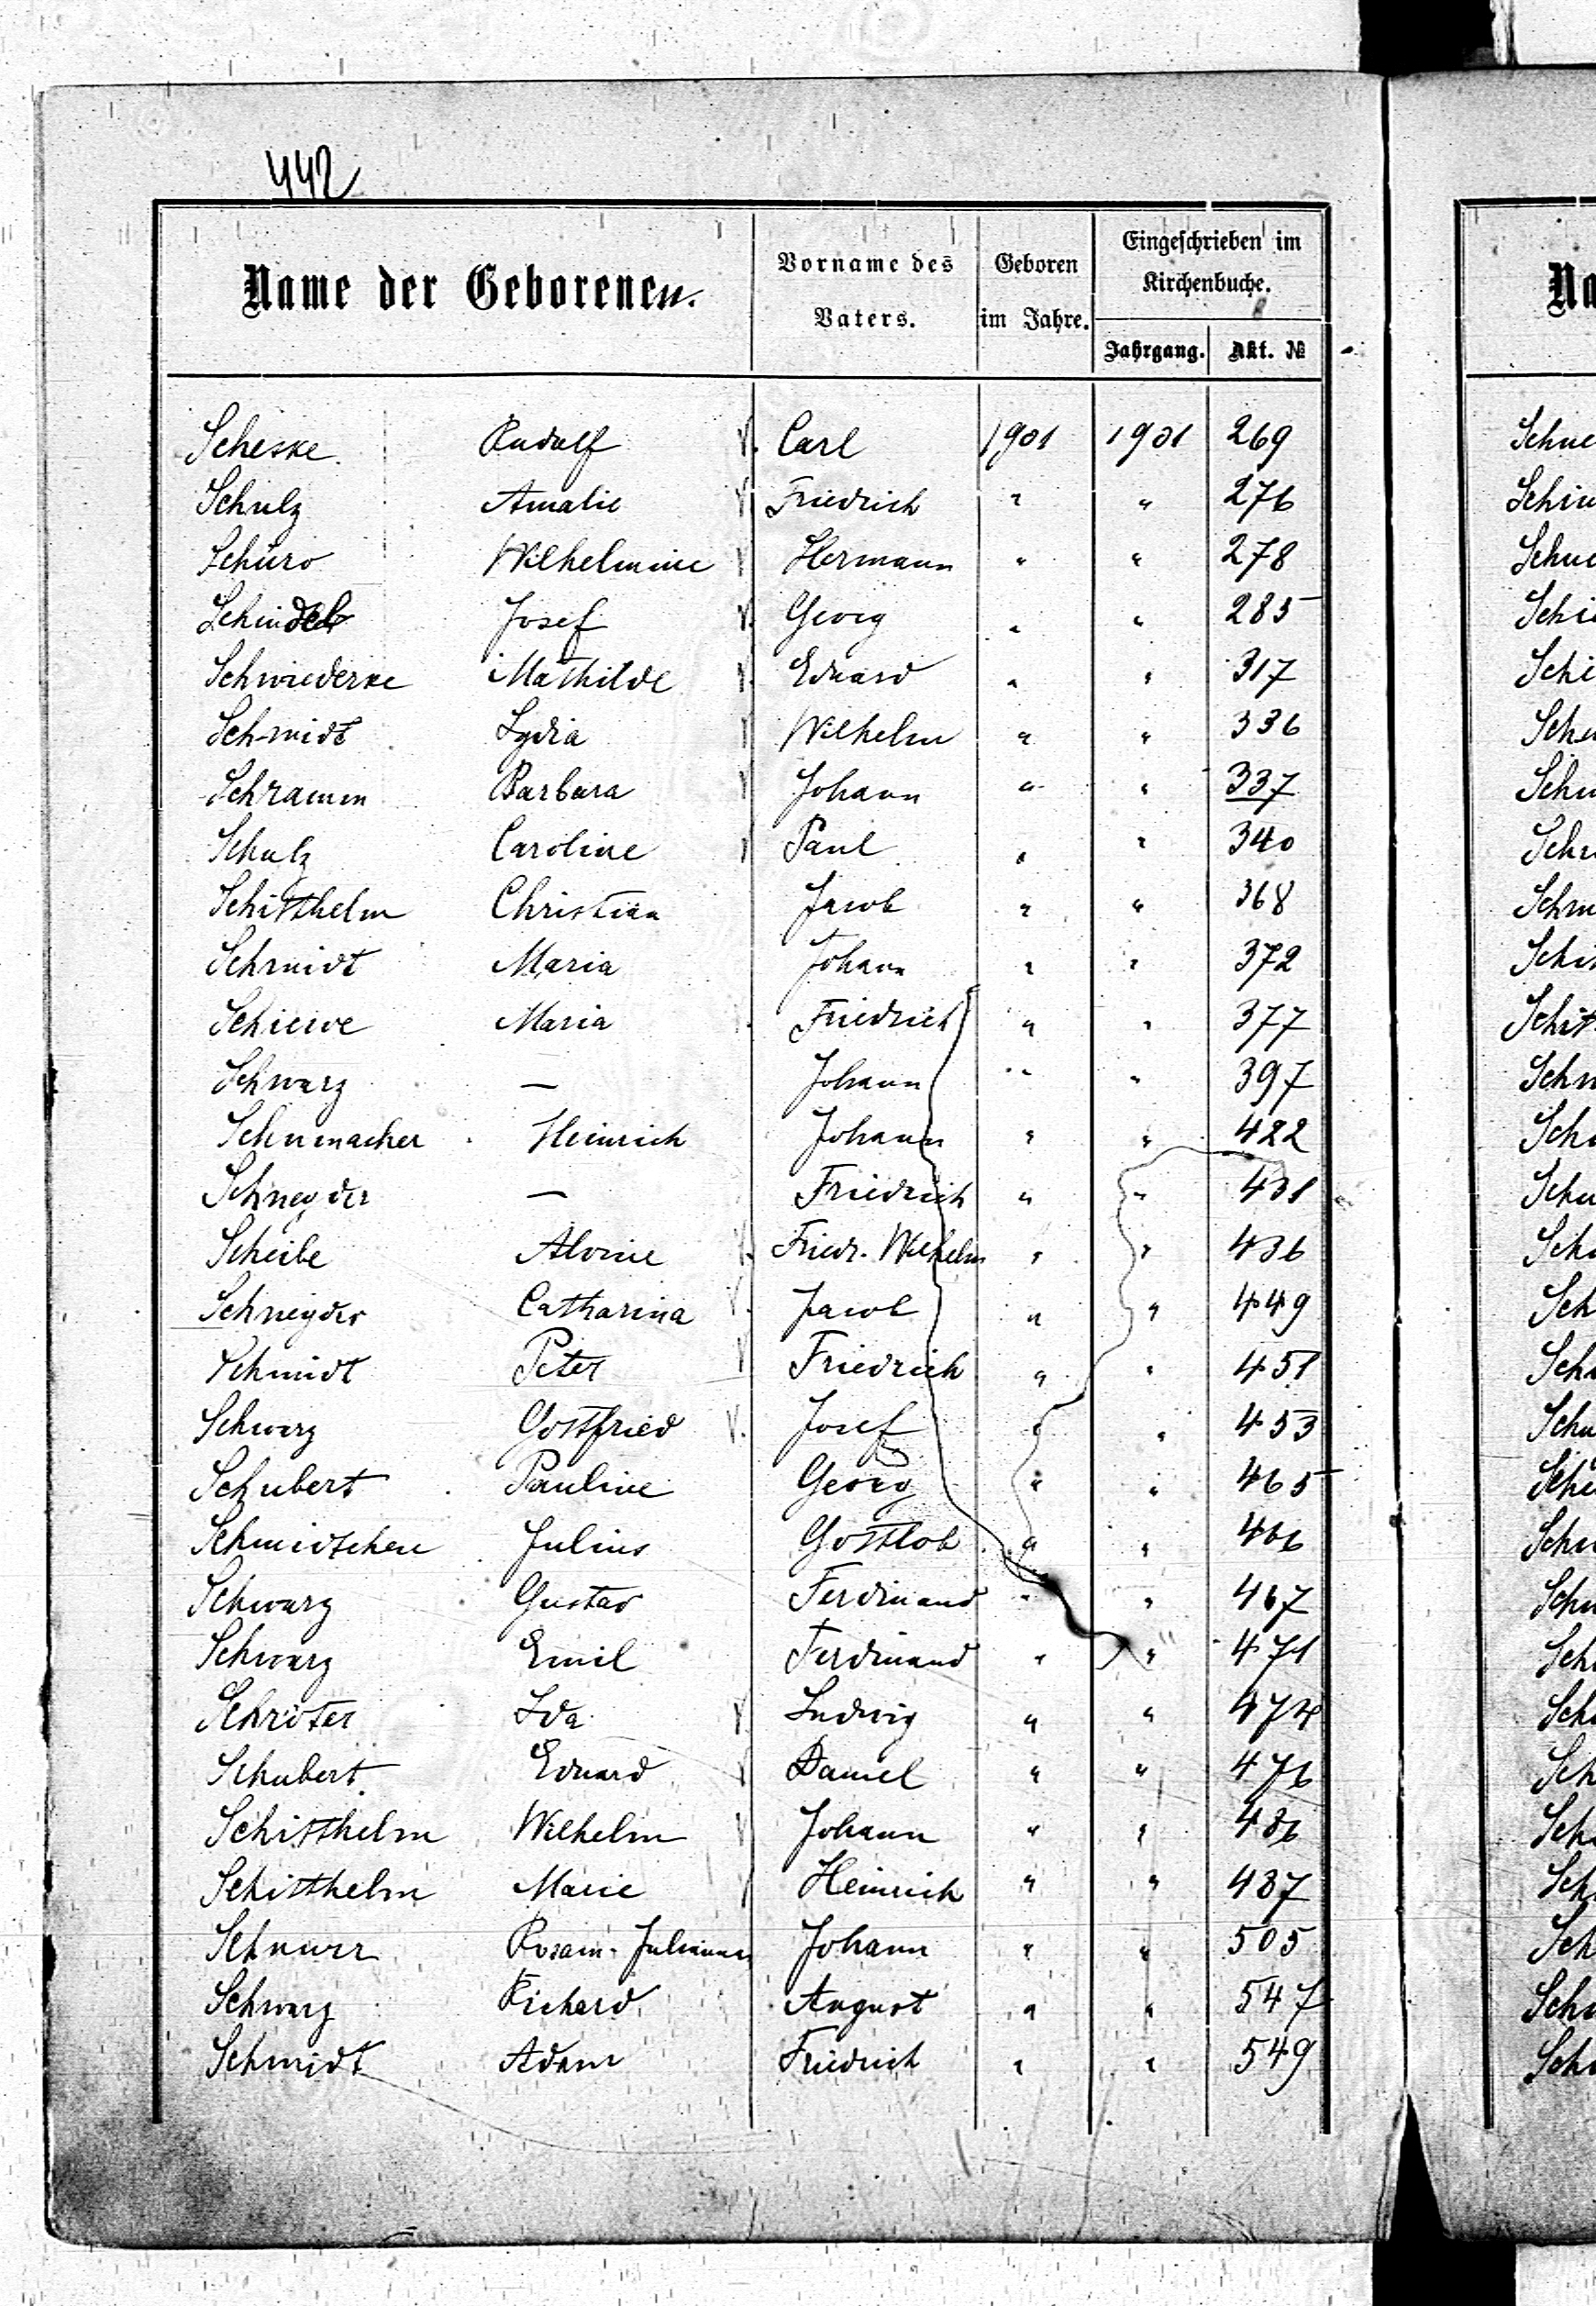 442
Name der Geborenen. Vorname des Vaters. Geboren im Jahre. Eingeschrieben im Kirchenbuche.
Jahrgang. Akt. №
Scheske Rudolf V. Carl 1901 1901 269
Schulz Amalie V Friedrich " " 276
Schüro Wilhelmine V Hermann " " 278
Schindel Josef V. Georg " " 285
Schwiederke Mathilde V. Eduard " " 317
Schmidt Lydia V Wilhelm " " 336
Schramm Barbara V Johann " " 337
Schulz Caroline V Paul " " 340
Schitthelm Christian Jacob " " 368
Schmidt Maria Johann " " 372
Schiewe Maria Friedrich " " 377
Schwarz — Johann " " 397
Schumacher Heinrich Johann " " 422
Schneyder — Friedrich " " 431
Scheibe Alvine V. Friedr. Wilhelm " " 436
Schneyder Catharina V. Jacob " " 449
Schmidt Peter V Friedrich " " 451
Schwarz Gottfried V. Josef " " 453
Schubert Pauline Georg " " 465
Schmidtchen Julius Gottlob " " 466
Schwarz Gustav Ferdinand " " 467
Schwarz Emil Ferdinand " " 471
Schröter Ida V. Ludwig " " 474
Schubert Eduard V Daniel " " 476
Schitthelm Wilhelm V Johann " " 486
Schitthelm Marie V Heinrich " " 487
Schnurr Johann " " 505
Schwarz Richard August " " 547
Schmidt Adam Friedrich " " 549